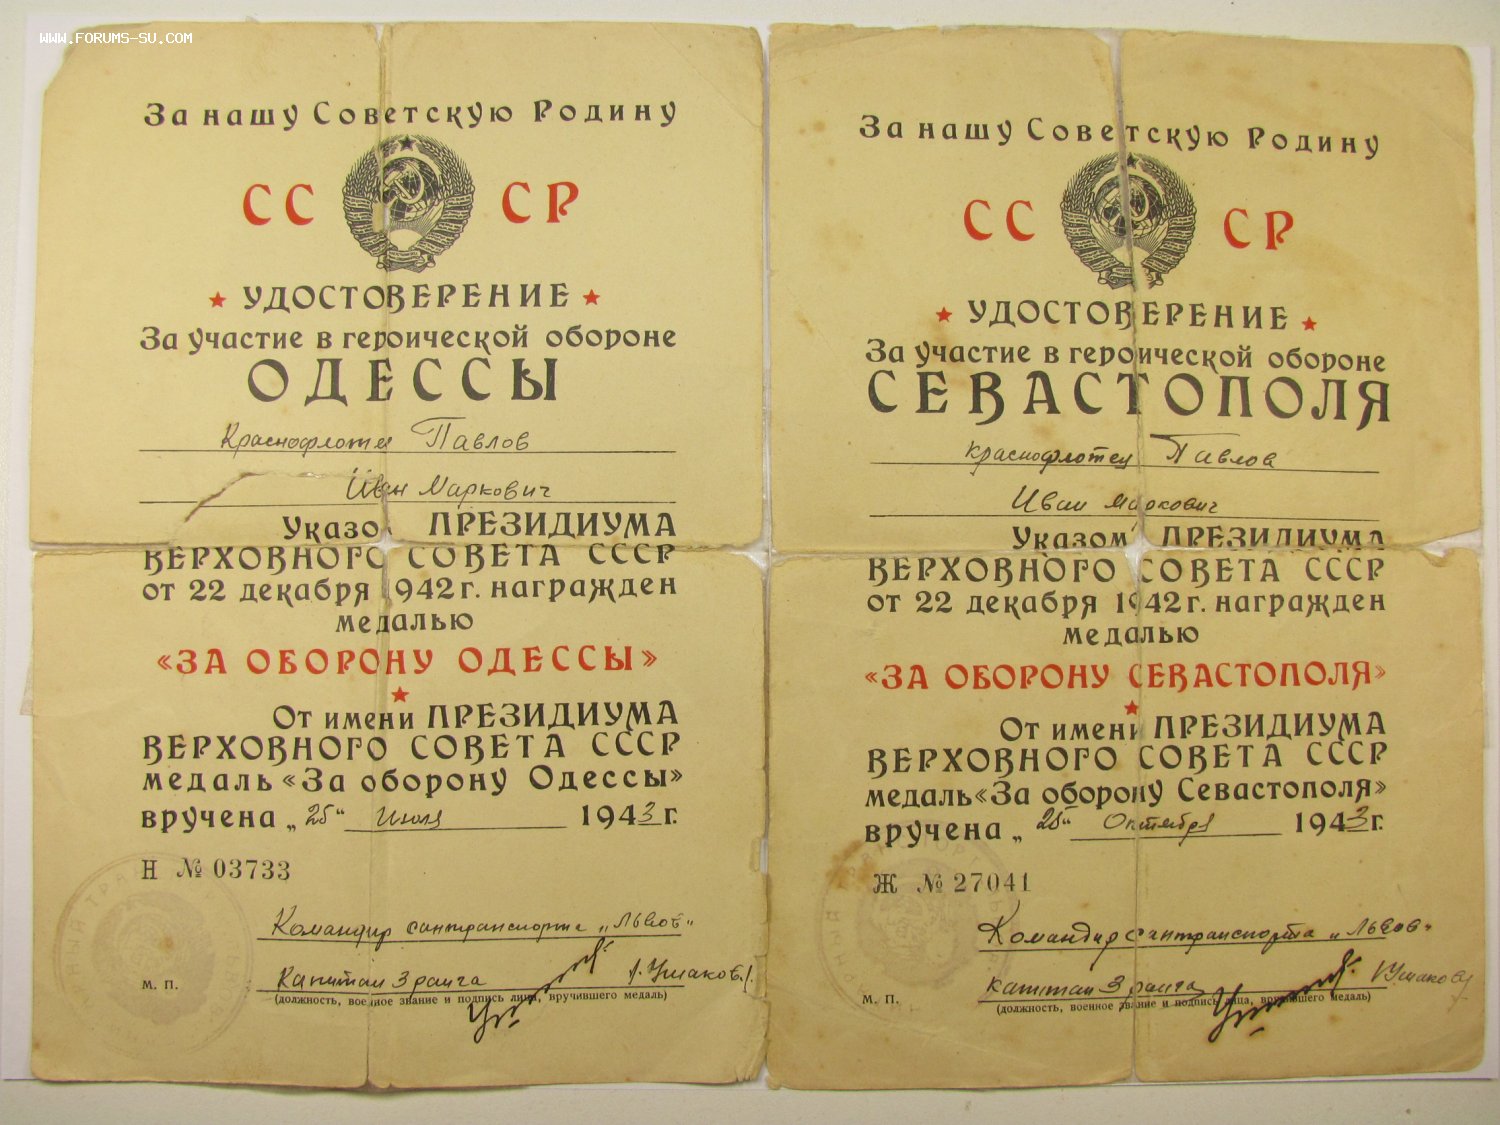 WWW.FORUMS-SU.COM
За нашу Советскую Родину
СС СР
УДОСТОВЕРЕНИЕ
За участие в героической обороне
ОДЕССЫ
Краснофлотец Павлов
Иван Маркович
Указом ПРЕЗИДИУМА
ВЕРХОВНОГО СОВЕТА СССР
от 22 декабря 1942 г. награжден
медалью
«ЗА ОБОРОНУ ОДЕССЫ»
От имени ПРЕЗИДИУМА
ВЕРХОВНОГО СОВЕТА СССР
медаль «За оборону Одессы»
вручена „25“ Июля 1943 г.
Н № 03733
Командир сантранспорта „Львов“
М. П.
капитан 3 ранга /Ушаков/
(должность, военное звание и подпись лица, вручившего медаль)
За нашу Советскую Родину
СС СР
УДОСТОВЕРЕНИЕ
За участие в героической обороне
СЕВАСТОПОЛЯ
краснофлотец Павлов
Иван Маркович
Указом ПРЕЗИДИУМА
ВЕРХОВНОГО СОВЕТА СССР
от 22 декабря 1942 г. награжден
медалью
«ЗА ОБОРОНУ СЕВАСТОПОЛЯ»
От имени ПРЕЗИДИУМА
ВЕРХОВНОГО СОВЕТА СССР
медаль «За оборону Севастополя»
вручена „25“ Октября 1943 г.
Ж № 27041
Командир сантранспорта „Львов“
М. П.
капитан 3 ранга /Ушаков/
(должность, военное звание и подпись лица, вручившего медаль)